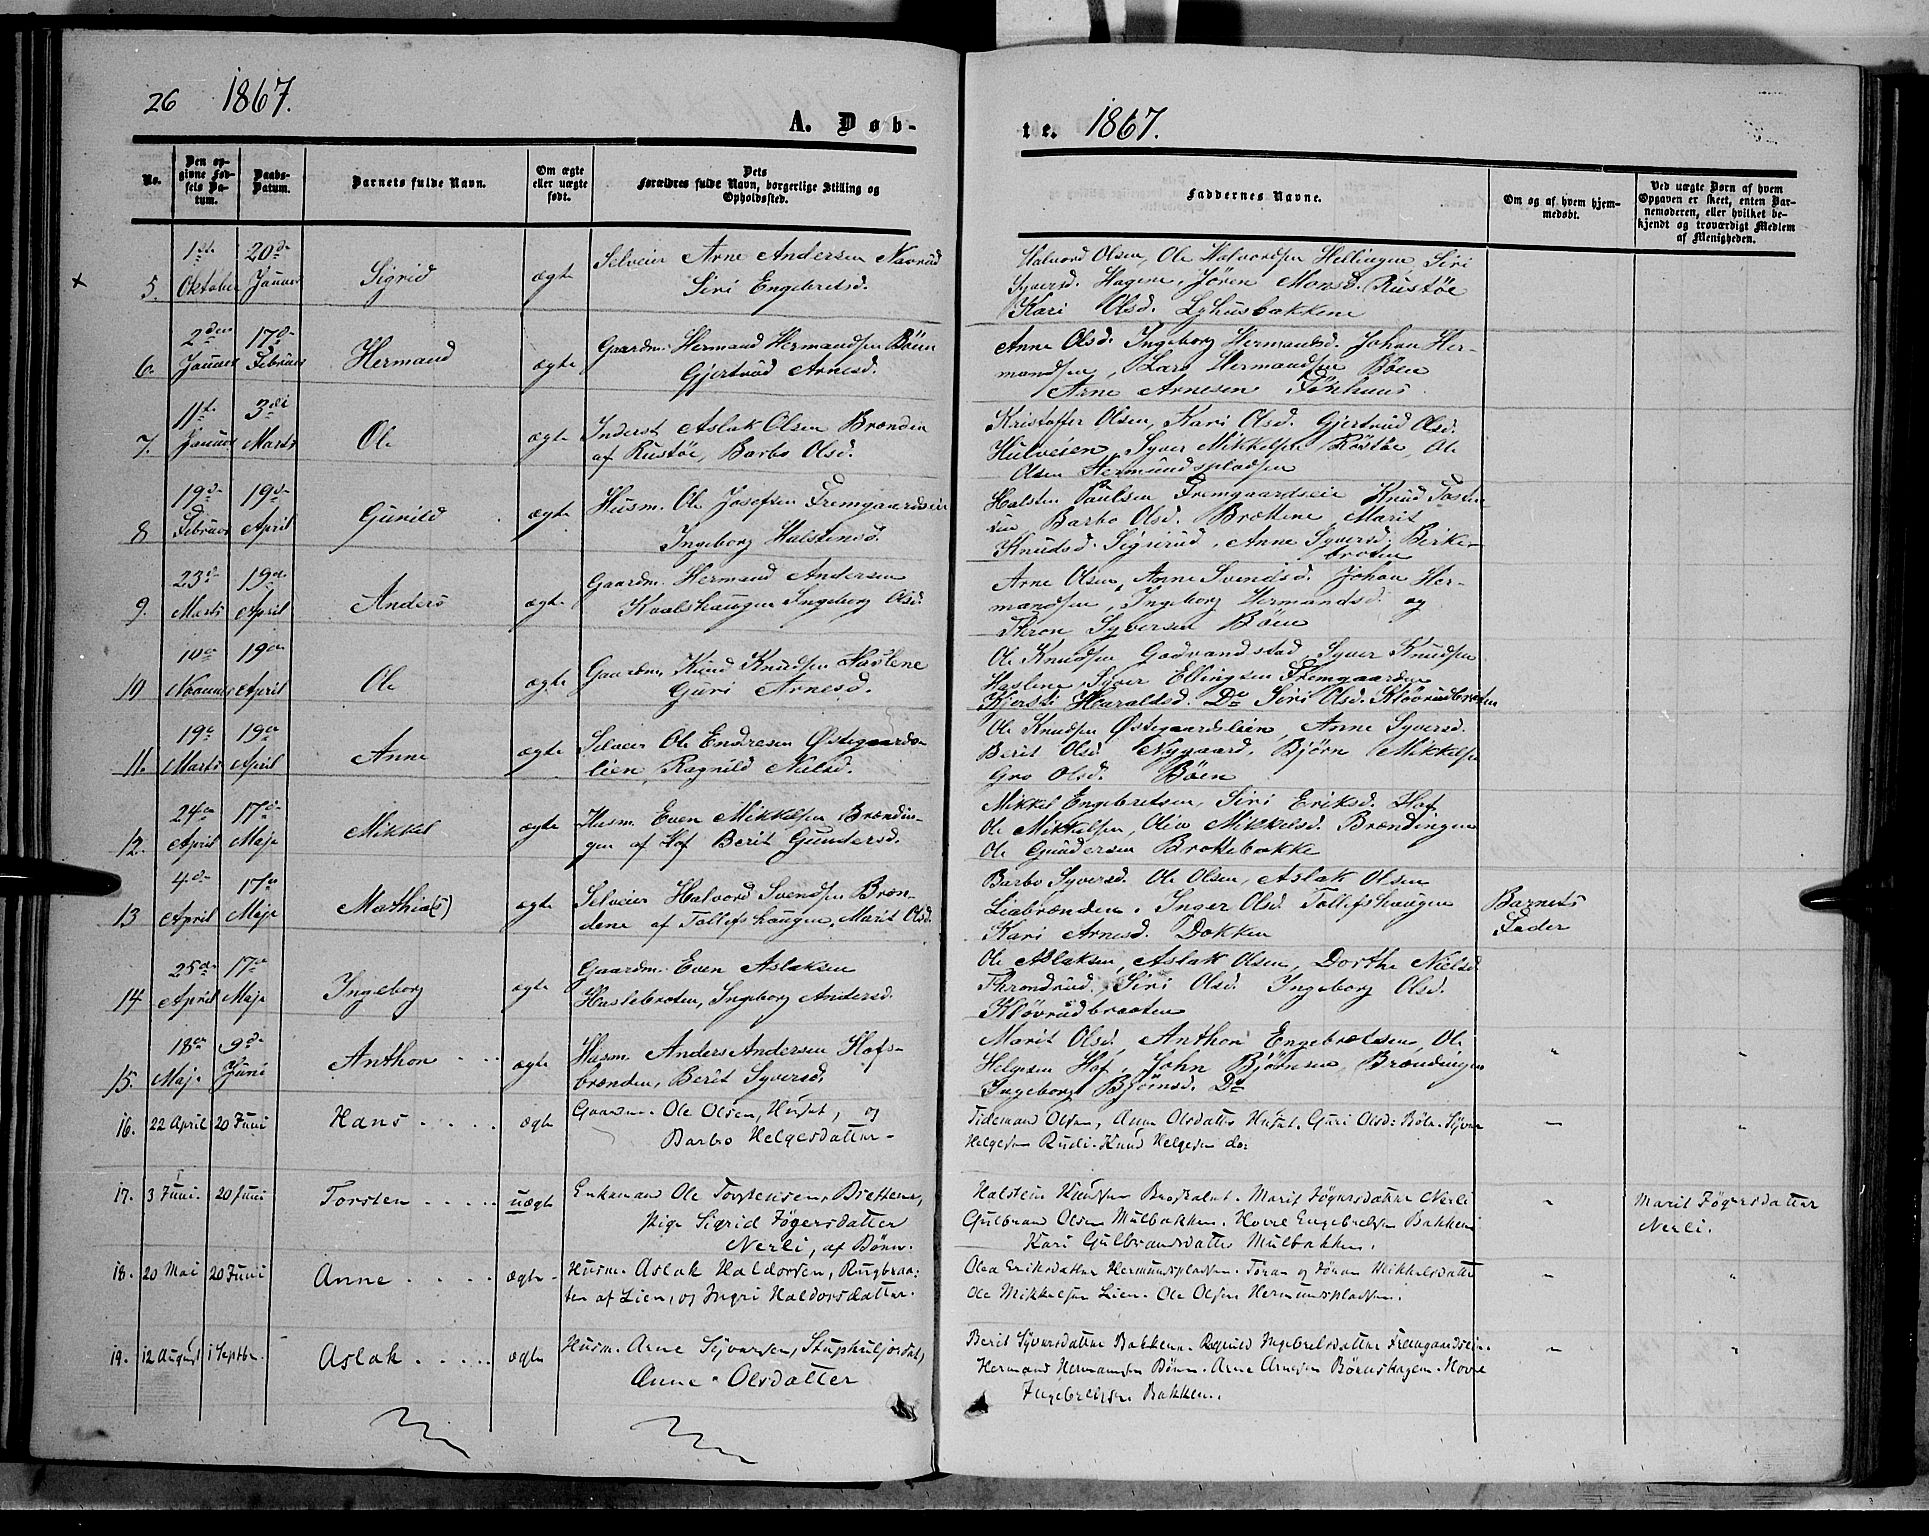 26 1867.
A. Døb-
No.
Den op-
givne Fød-
sels Da-
tum.
Daabs-
Datum.
Barnets fulde Navn.
Om ægte
eller uægte
født.
Dets
Forældres fulde Navn, borgerlige Stilling og
Opholdssted.
5. 1ste Oktober 20de Januar Sigrid ægte
Selveier Arne Andersen Navrud
Siri Engebretsd.
6. 2den Januar 17de Februar Hermand ægte
Gaardm. Hermand Hermandsen Bøen
Gjertrud Arnesd.
7. 11te Januar 3die Marts Ole ægte
Inderst Aslak Olsen Brænden
af Rustøe, Barbo Olsd.
8 19de Februar 19de April Gunild ægte
Husm. Ole Josefsen Fremgaardseie
Ingeborg Halstensd.
9. 23de Marts 19de April Anders ægte
Gaardm. Hermand Andersen
Kvalshaugen Ingeborg Olsd.
10 10de Januar 19de April Ole ægte
Gaardm. Knud Knudsen Haslene
Guri Arnesd.
11. 19de Marts 19de April Anne ægte
Selveier Ole Endresen Østegaards-
lien, Ragnild Nilsd.
12. 24de April 17de Maje Mikkel ægte
Husm. Even Mikkelsen Brændin-
gen af Hof Berit Gundersd.
13 4de April 17de Maje Mathia(s) ægte
Selveier Halvord Svendsen Bræn-
dene af Tollefshaugen, Marit Olsd.
14 25de April 17de Maje Ingeborg ægte
Gaardm. Even Aslaksen
Haslebroten, Ingeborg Andersd.
15. 18de Maje 9de Juni Anthon ægte
Husm. Anders Andersen Hofs-
brænden, Berit Syversd.
16. 22 April 20 Juni Hans ægte
Gaardm. Ole Olsen, Huset, og
Barbo Helgesdatter
17. 3 Juni. 20 Juni Torsten uægte
Enkemand Ole Torstensen, Brettene,
Pige Sigrid Jøgersdatter
Nerli, af Bøen.
18. 20 Mai 20 Juni Anne ægte
Husm. Aslak Haldorsen, Rugbraa-
ten af Lien, og Ingri Haldorsdatter.
19. 12 August 1 Septbr. Aslak ægte
Husm. Arne Syversen,
Anne Olsdatter
te. 1867.
Faddernes Navne.
Om og af hvem hjem-
medøbt.
Ved uægte Børn af hvem
Opgaven er skeet, enten Bar-
nemoderen, eller hvilket be-
kjendt og troværdigt Medlem
af Menigheden.
Halvord Olsen, Ole Halvordsen Hellingen Siri
Syversd. Hagene, Jøren Monsd. Rustøe
Kari Olsd. Lyhusbakkene
Anne Olsd. Ingeborg Hermandsd. Johan Her-
mandsen, Lars Hermandsen Bøen
Arne Arnesen Tønhuus
Kristoffer Olsen, Kari Olsd. Gjertrud Olsd.
Hulveien, Syver Mikkelsen Rustøe, Ole
Olsen Hermundspladsen
Halsten Paulsen Fremgaardseie Knud Tosten-
sen, Barbo Olsd. Brættene, Marit
Knudsd. Sigrerud, Anne Syversd. Birke-
broten
Arne Olsen, Anne Svendsd. Johan Her-
mandsen, Ingeborg Hermandsd. og
Thron Syversen Bøen
Ole Knudsen Godvandstad, Syver Knudsen
Haslene, Syver Ellingsen Fremgaarden
Kjersti Haraldsd. Do Siri Olsd. Kløvrudbraaten
Ole Knudsen Østegaardslien, Anne Syversd.
Berit Olsd. Nygaard, Bjørn Mikkelsen
Gro Olsd. Bøen
Mikkel Engebretsen, Siri Eriksd. Hof
Ole Mikkelsen, Olia Mikkelsd. Brændingen
Ole Gundersen Brokebakke
Barbo Syversd. Ole Olsen, Aslak Olsen
Liabrænden, Inger Olsd. Tollefshaugen
Kari Arnesd. Dokken
Barnets
Fader
Ole Aslaksen, Aslak Olsen, Dorthe Nielsd.
Throndrud. Siri Olsd. Ingeborg Olsd.
Kløvrudbraaten
Marit Olsd. Anthon Engebretsen, Ole
Helgesen Hof, John Bjørnsen, Brændingen
Ingeborg Bjørnsd. Do
Tideman Olsen, Anne Olsdatter Huset. Guri Olsd: Bøle. Syver
Helgesen Rudi. Knud Helgesen do:
Halstein Knudsen Marit Jøgersdatter Nerli
Gulbrand Olsen Mulbakken. Hovel Engebretsen Bakken
Kari Gulbrandsdatter Mulbakken.
Marit Jøgersdatter
Nerli.
Olea Eriksdatter Hermundspladsen. Toran og Jøran Mikkelsdatter
Ole Mikkelsen Lien. Ole Olsen Hermundspladsen.
Berit Syversdatter Bakken. Ragnild Ingebretsdatter Fremgaardseie.
Hermand Hermandsen Bøen. Arne Arnesen Bøenshagen. Hovel
Ingebretsen Bakken.